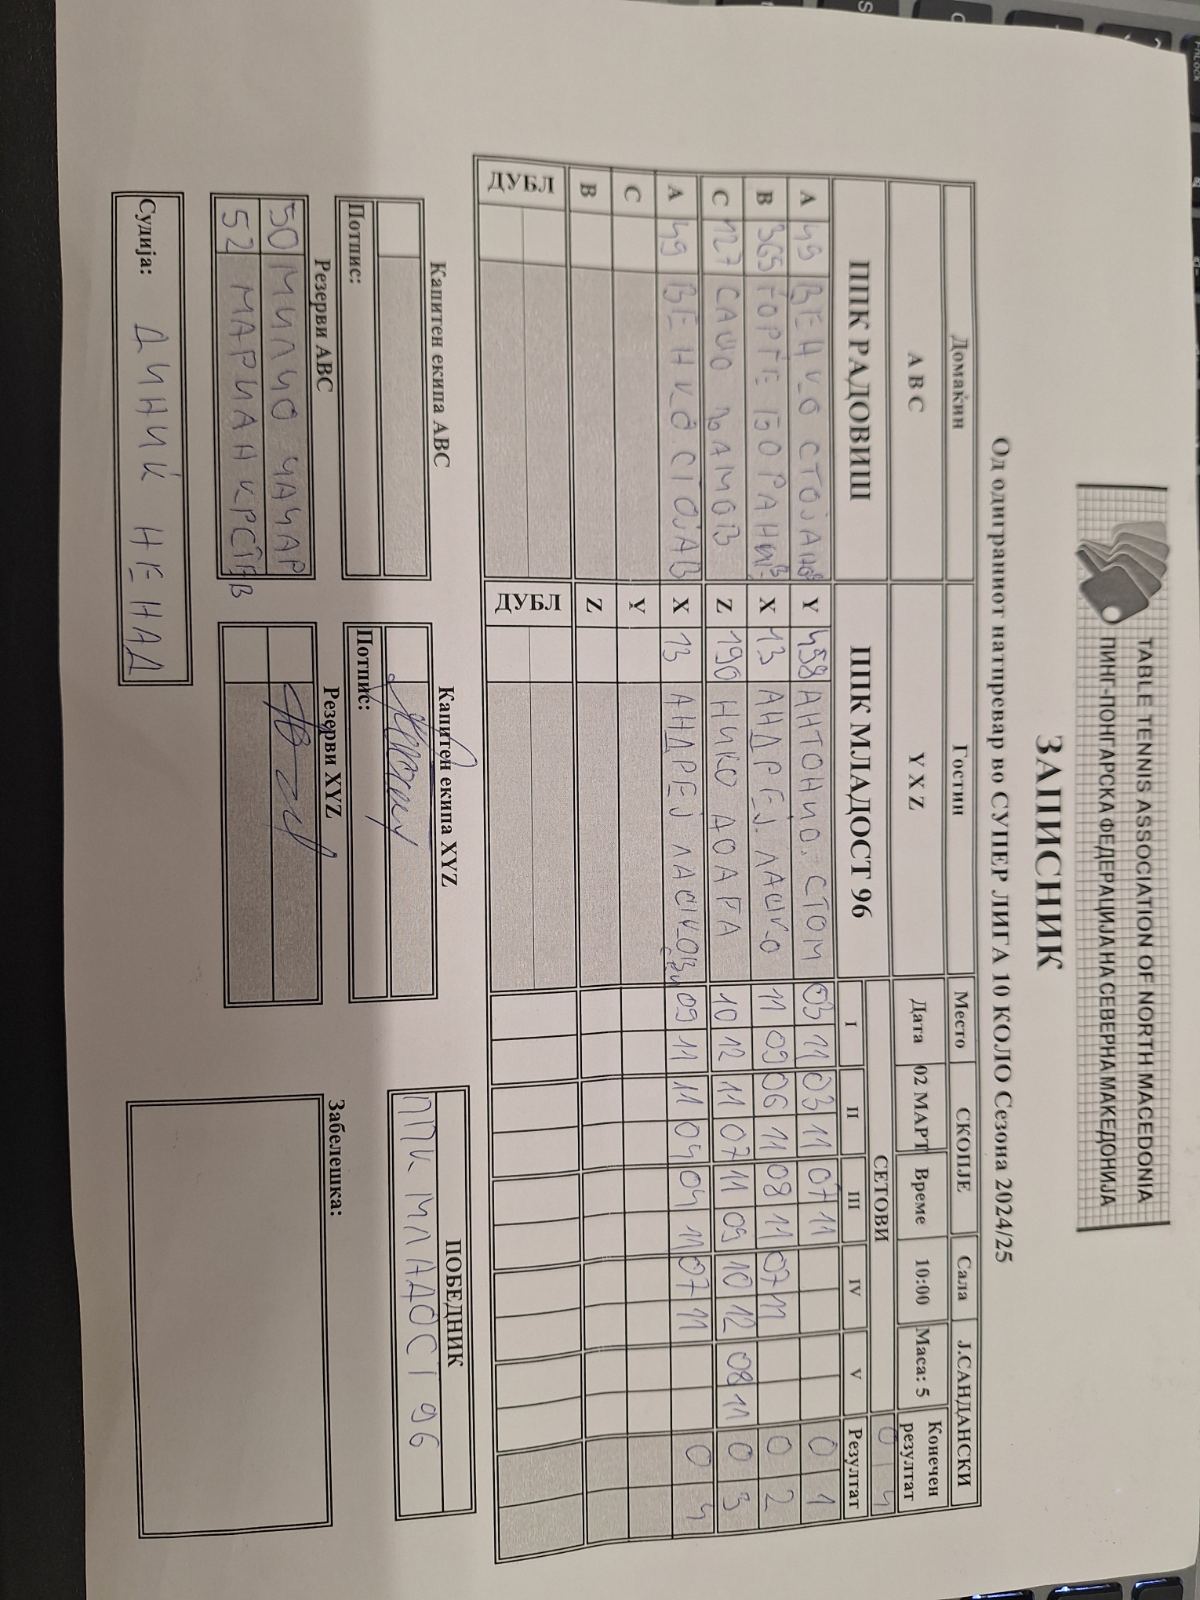 TABLE TENNIS ASSOCIATION OF NORTH MACEDONIA
ПИНГ-ПОНГАРСКА ФЕДЕРАЦИЈА НА СЕВЕРНА МАКЕДОНИЈА
ЗАПИСНИК
Од одиграниот натпревар во СУПЕР ЛИГА 10 КОЛО Сезона 2024/25
Домаќин Гостин Место СКОПЈЕ Сала Ј.САНДАНСКИ
A B C Y X Z Дата 02 МАРТ Време 10:00 Маса: 5 Конечен резултат
СЕТОВИ 0 4
ППК РАДОВИШ ППК МЛАДОСТ 96 I II III IV V Резултат
A 49 ВЕНКО Y 458 АНТОНИО. СТОМ 03 11 03 11 07 11 0 1
B 365 ЃОРЃЕ X 13 АНДРЕЈ. ЛАШКО 11 09 06 11 08 11 07 11 0 2
C 127 САШО Z 190 НИКО 10 12 11 07 11 09 10 12 08 11 0 3
A 49 ВЕНКО СТОЈАВ X 13 АНДРЕЈ 09 11 11 04 04 11 07 11 0 4
C Y
B Z
ДУБЛ ДУБЛ
Капитен екипа ABC Капитен екипа XYZ ПОБЕДНИК
ППК МЛАДОСТ 96
Потпис: Потпис:
Резерви ABC Резерви XYZ Забелешка:
50 МИЛЧО ЧАЧАР
52 МАРИАН КРСТЕВ
Судија: НЕНАД